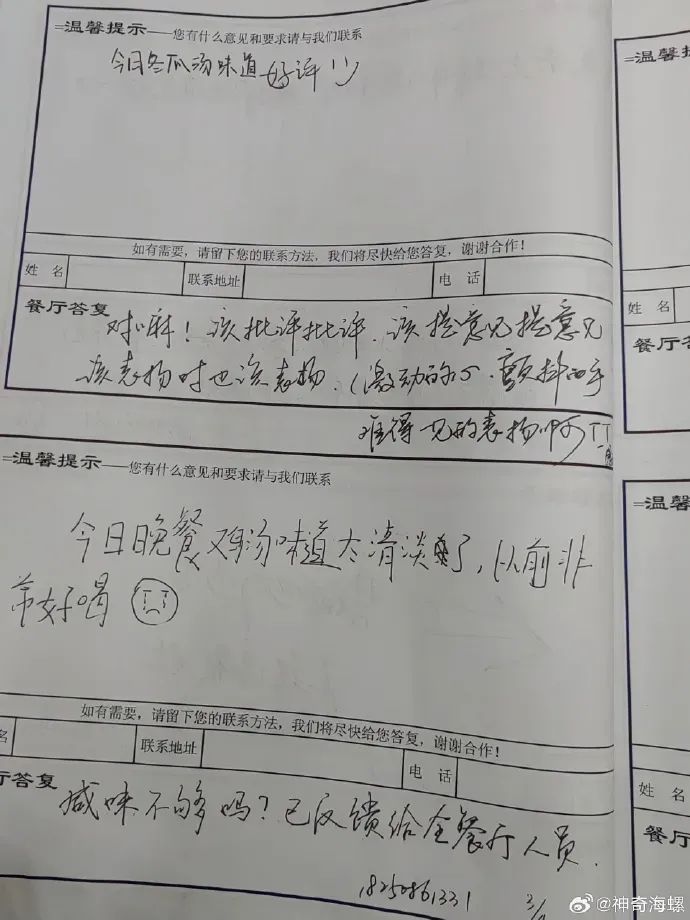 =温馨提示——您有什么意见和要求请与我们联系
今日冬瓜汤味道好评!!
如有需要，请留下您的联系方法，我们将尽快给您答复，谢谢合作！
姓 名 联系地址 电 话
餐厅答复
对嘛！该批评批评．该提意见提意见
该表扬时也该表扬．(激动的心．颤抖的手
难得一见的表扬啊TT
=温馨提示——您有什么意见和要求请与我们联系
今日晚餐鸡汤味道太清淡了，以前非
常好喝
如有需要，请留下您的联系方法，我们将尽快给您答复，谢谢合作！
名 联系地址 电 话
厅答复
咸味不够吗？已反馈给全餐厅人员．
18250861331
=温馨提
姓 名
餐厅答
=温馨
姓 名
餐厅
@神奇海螺